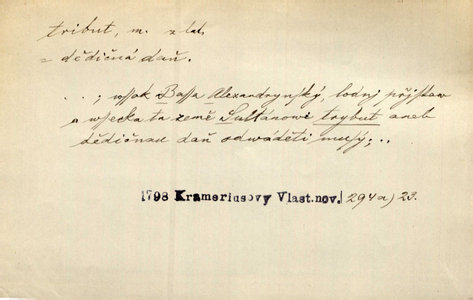 tribut, m. z lat.
= dědičná daň.
...; wssak Bassa Alexandrynský, lodnj přjstaw
a wsecka ta země Sultánowi trybut aneb
dědičnau daň odwáděti musý; ...
1798 Krameriusovy Vlast.nov. 294a) 23.